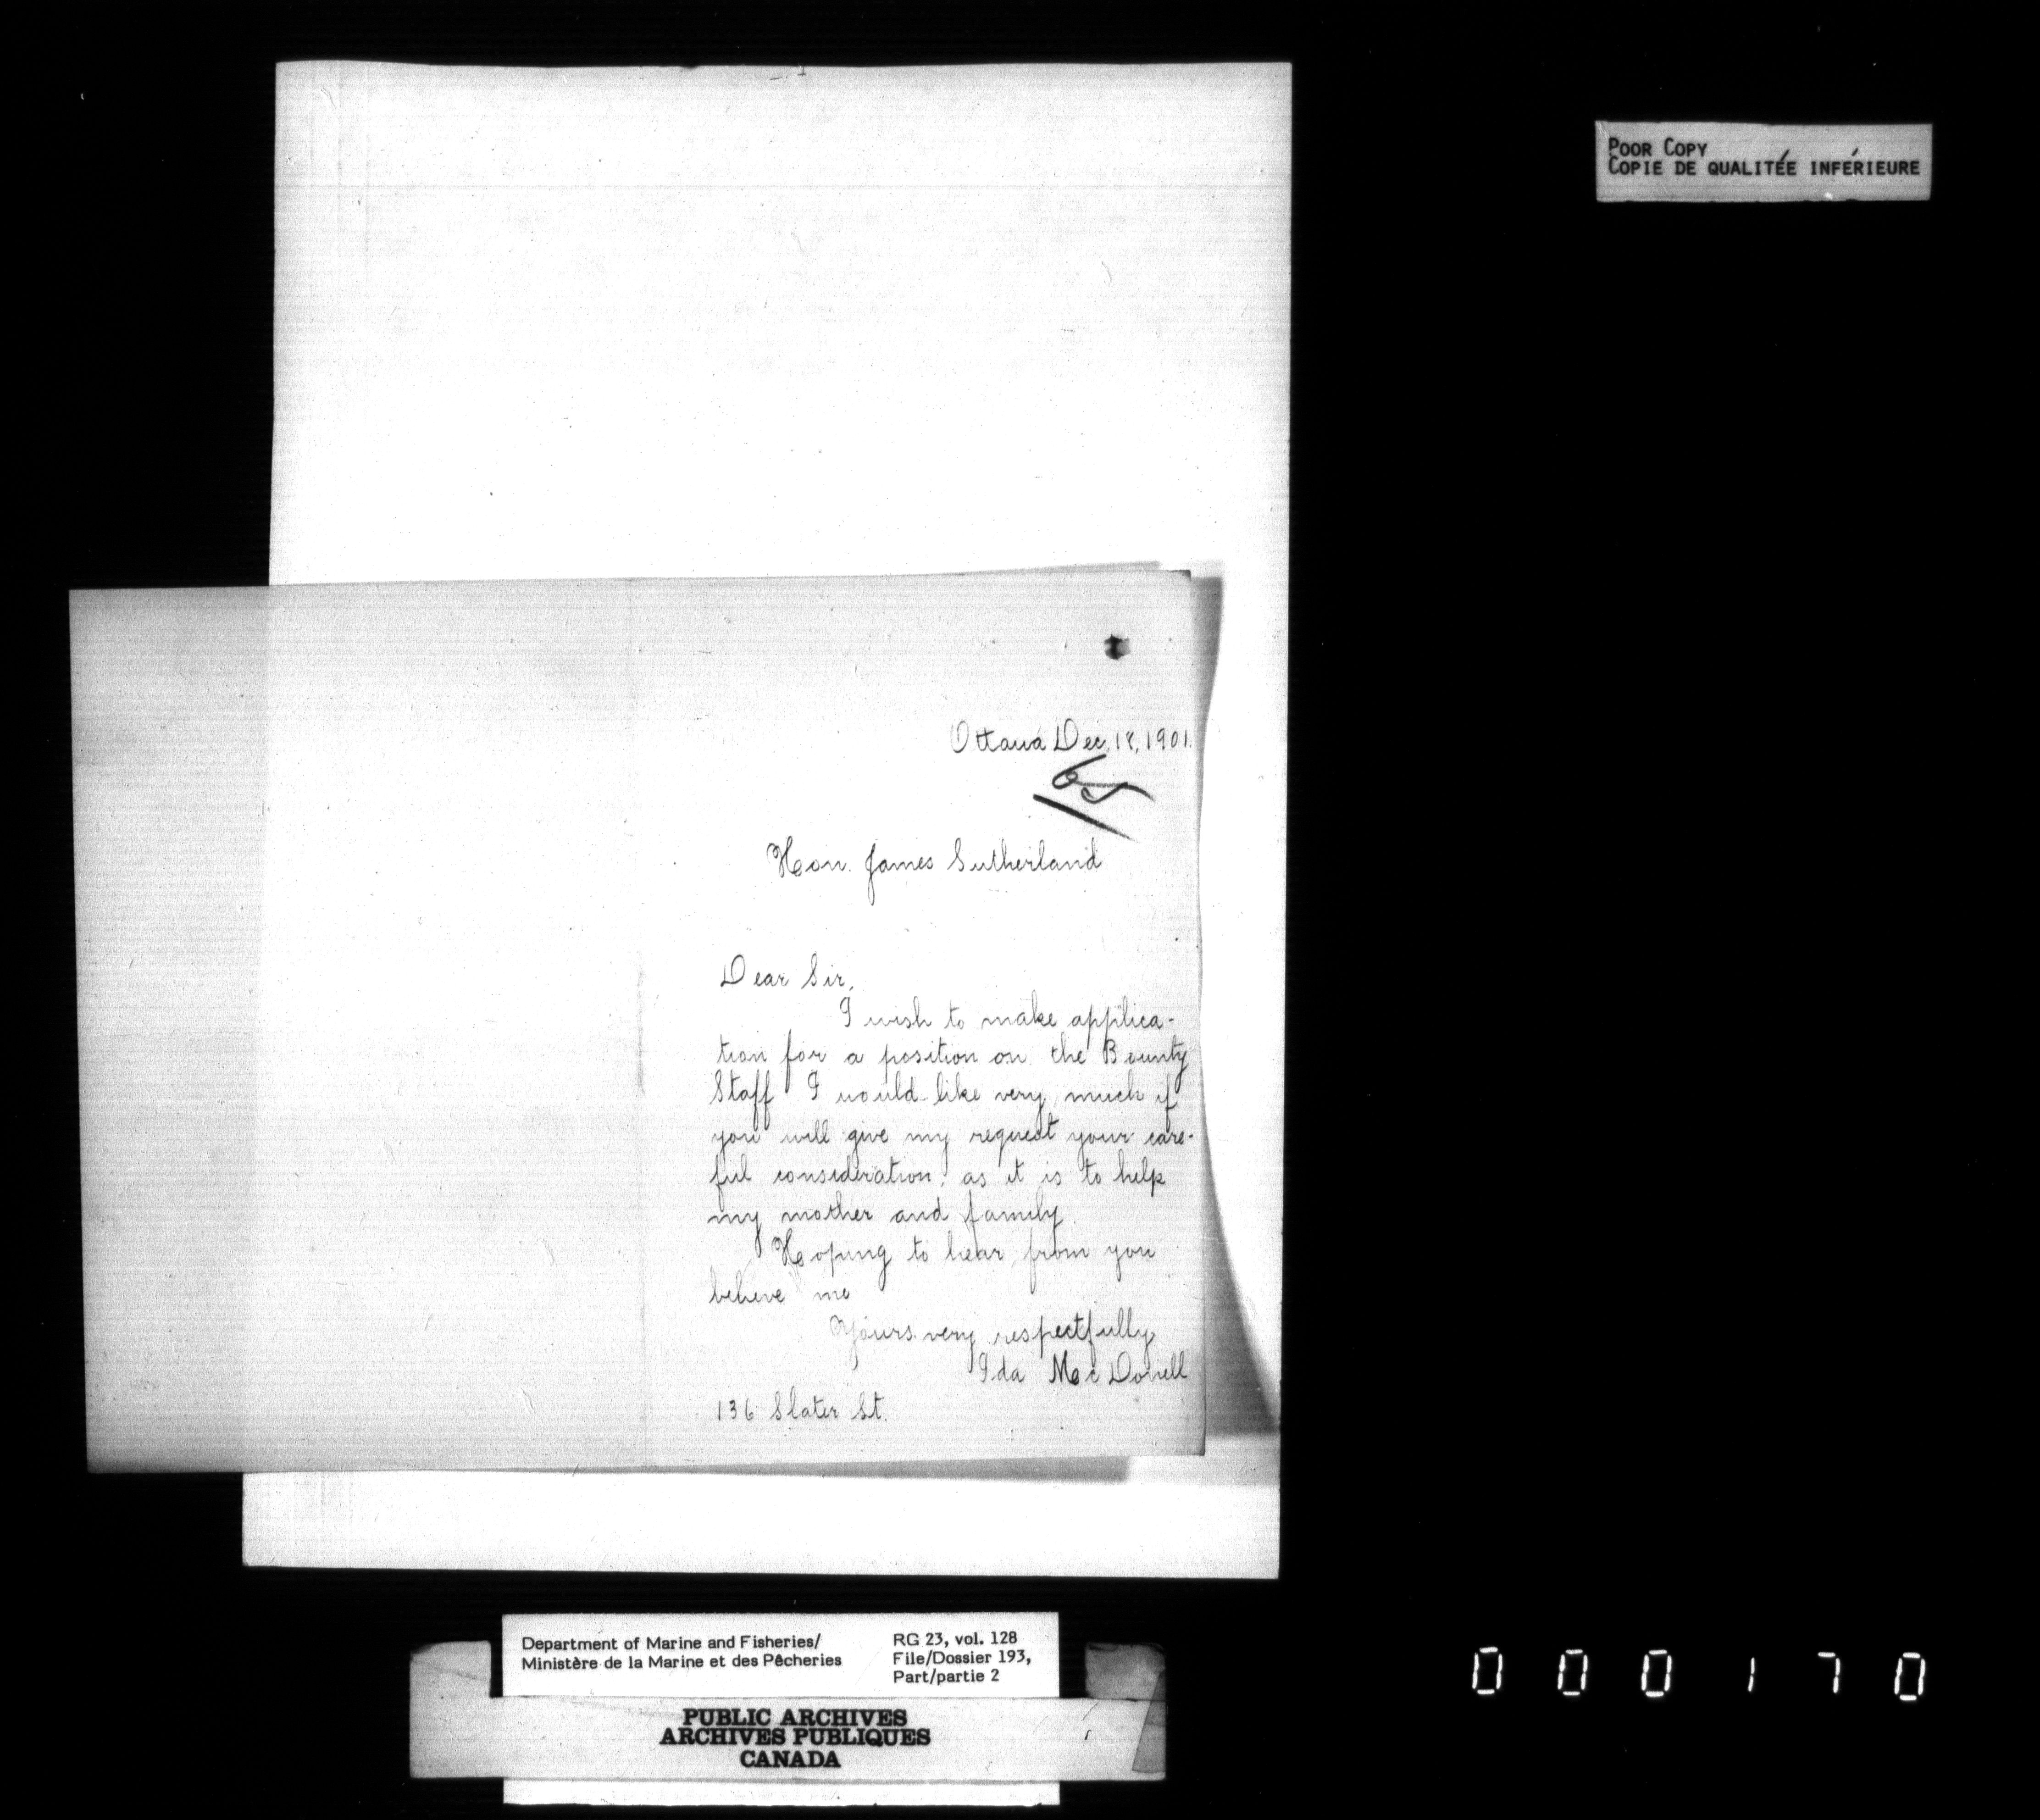 POOR COPY
COPIE DE QUALITÉE INFÉRIEURE
Ottawa Dec. 18, 1901.
65
Hon. James Sutherland
Dear Sir,
I wish to make applica-
tion for a position on the Bounty
Staff I would like very much if
you will give my request your care-
ful consideration, as it is to help
my mother and family.
Hoping to hear from you
believe me
Yours very respectfully
Ida MacDonell
136 Slater St.
Department of Marine and Fisheries/
Ministère de la Marine et des Pêcheries
RG 23, vol. 128
File/Dossier 193,
Part/partie 2
PUBLIC ARCHIVES
ARCHIVES PUBLIQUES
CANADA
000170